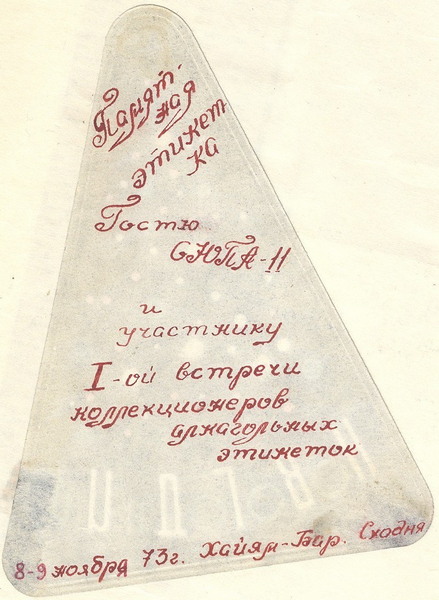 Памят-
ная
этикет
ка
Гостю
СЮПА-11
и
участнику
I-ой встречи
коллекционеров
алкагольных
этикеток
8-9 ноября 73г. Хайям-Бар. Сходня